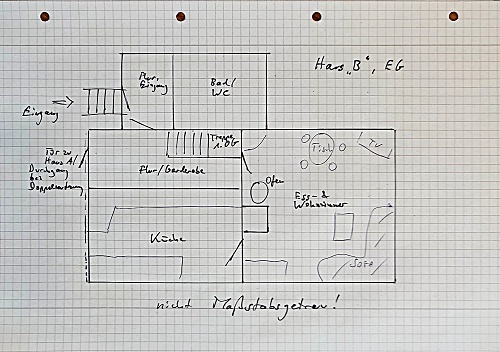 Haus „B“, EG
Flur,
Eingang
Bad/
WC
Eingang
Tür zu
Haus A/
Durchgang
bei
Doppelnutzung
Treppe
1. OG
Flur/Garderobe
Tisch
TV
Ofen
Ess- &
Wohnzimmer
Küche
Sofa
nicht Maßstabsgetreu!